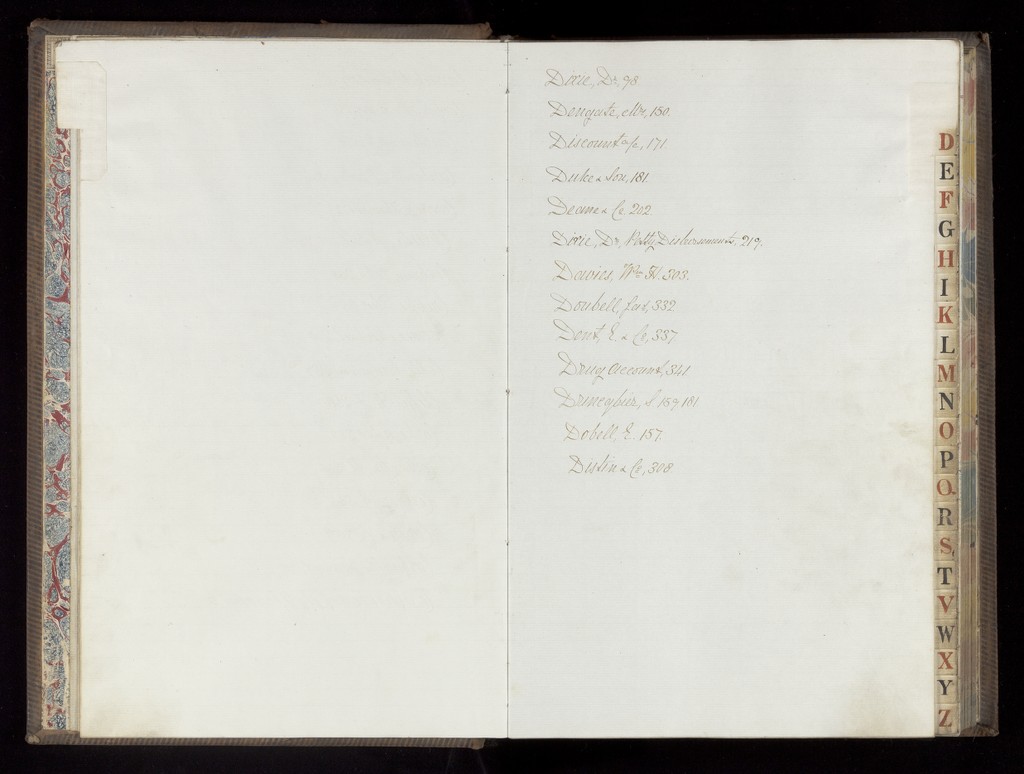 Dixie, Dr, 98.
Dengate, Mr, 150.
Discount a/c, 171.
Duke & Son, 181.
Deane & Co. 202.
Dixie, Dr, Petty Disbursements, 219.
Davies, Wm H. 303.
Doubell, Jas, 332.
Dent, E. & Co, 337.
Drug Account, 341.
S 159, 181
Dobell, E. 157.
Distin & Co, 308
D
E
F
G
H
I
K
L
M
N
O
P
Q
R
S
T
V
W
X
Y
Z